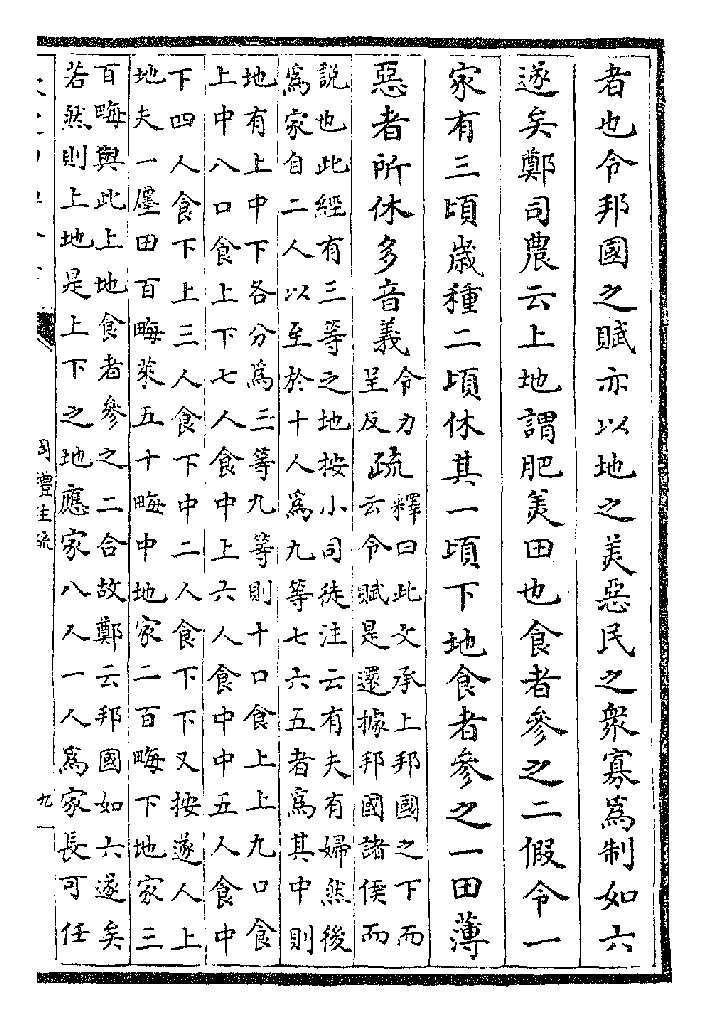 者也令邦國之賦亦以地之美惡民之衆寡爲制如六
遂矣鄭司農云上地謂肥美田也食者參之二假令一
家有三頃歲種二頃休其一頃下地食者參之一田薄
惡者所休多音義令力呈反疏釋曰此文承上邦國之下而云令賦是還據邦國諸侯而
說也此經有三等之地按小司徒注云有夫有婦然後
爲家自二人以至於十人爲九等七六五者爲其中則
地有上中下各分爲三等九等則十口食上上九口食
上中八口食上下七人食中上六人食中中五人食中
下四人食下上三人食下中二人食下下又按遂人上
地夫一廛田百畮萊五十畮中地家二百畮下地家三
百畮與此上地食者參之二合故鄭云邦國如六遂矣
若然則上地是上下之地應家八人一人爲家長可任
周禮注疏
九